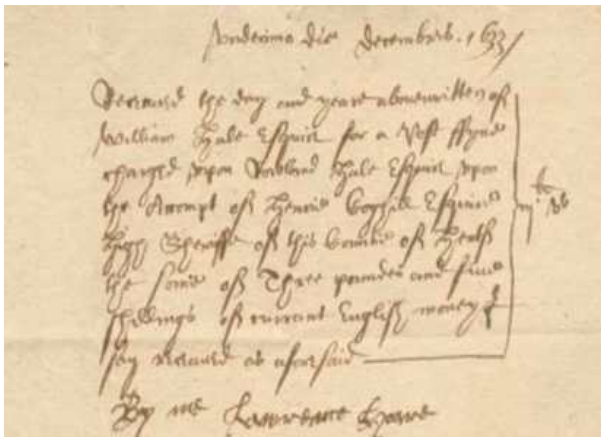 Undecimo die Decembris. 1633
Receaved the day and yeare abovewritten of
William Hale Esquier for a Post ffyne
charged upon Rowland Hale Esquier upon
the Accompt of Henrie Coghill Esquier
high Sheriffe of this Countie of Hertf
the some of Three poundes and five
shillings of currant English money
say receaved as aforesaid
By me Lawrence